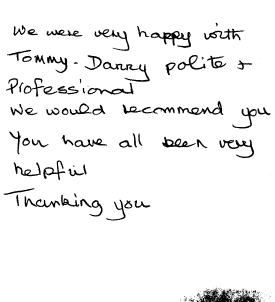 We were very happy with
Tommy - Danny polite +
Professional
We would recommend you
You have all been very
helpful
Thanking you